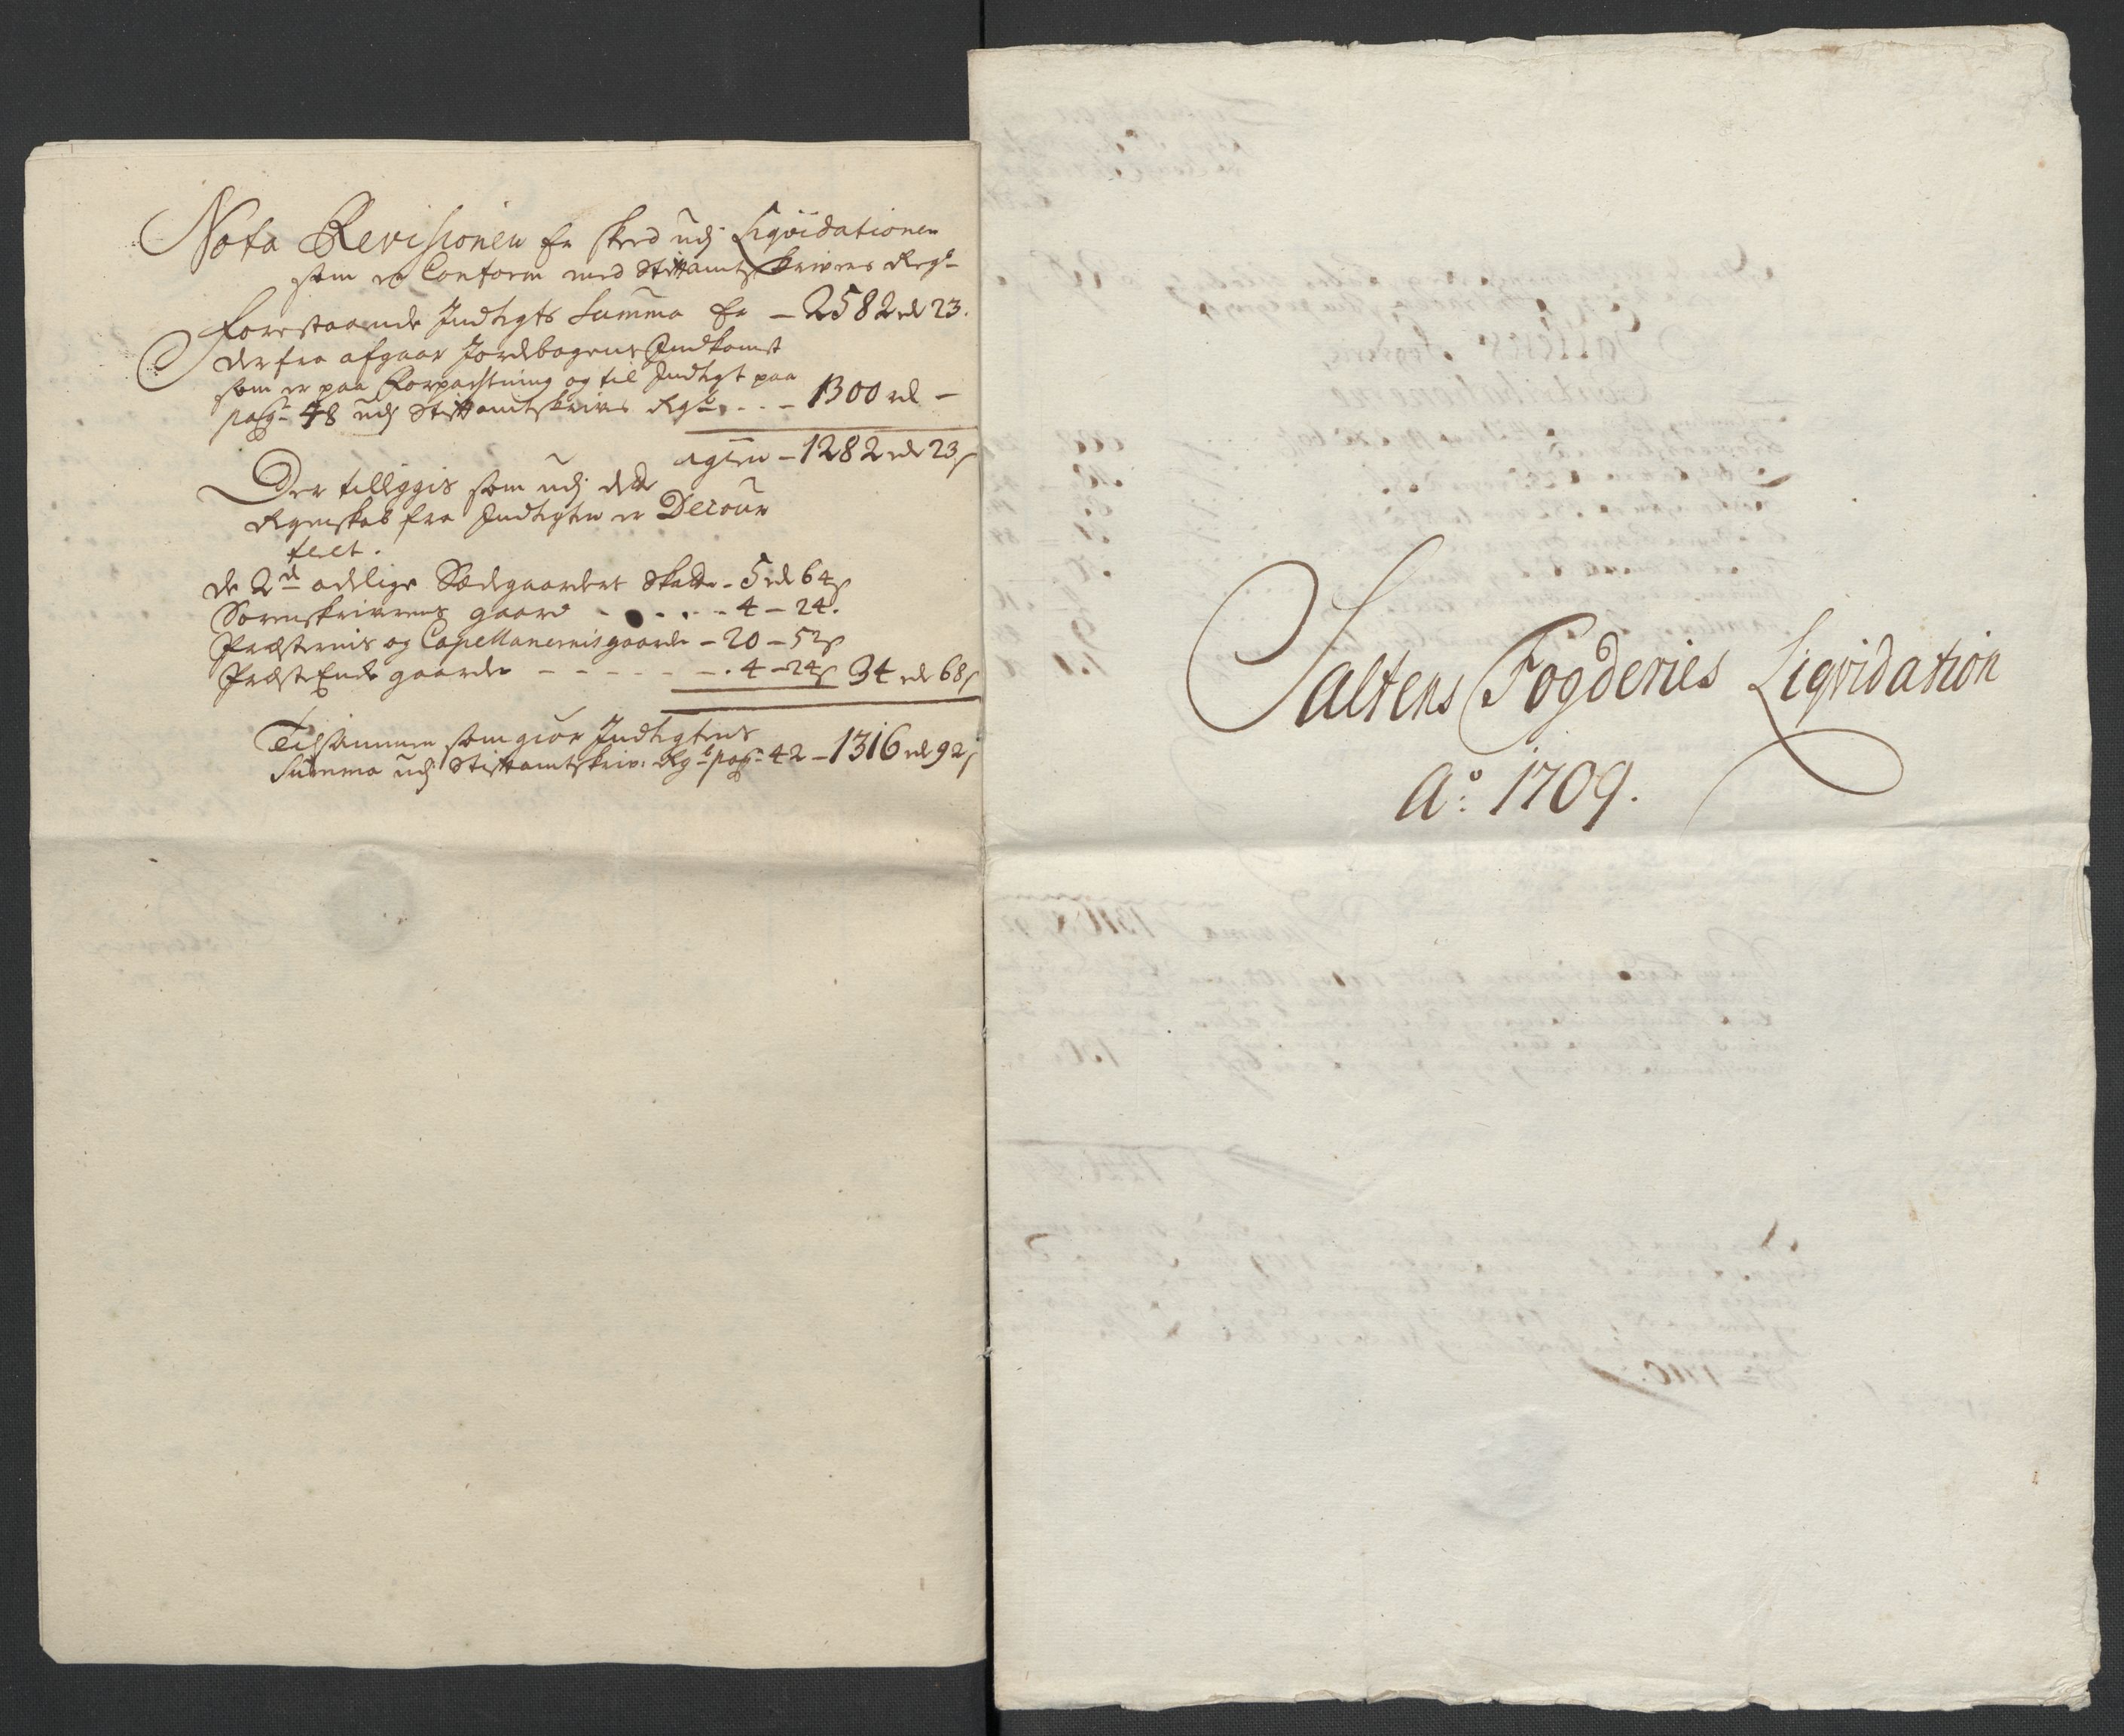 Nota Revisionen er skeed udj Liqvidationen
som er Conform med Stiftamtskrivens Regb
Forestaaende Indtegts Summa er – 2582 rd 23.
Derfra afgaar Jordebogens Indkomst
som er paa Forpachtning og til Indtegt paa
pag: 48 udj Stiftamtskrivs Regb. . . – 1300 rd –
igien – 1282 rd 23 s
Der tilleggis som udj dette
Regenskab fra Indtegten er Decour
teret.
de 2de adelige Sædegaarders Skatter – 5 rd 64 s
Sorenskriverens gaard – . . . – 4 – 24.
Præsternis og Capellanernis gaarde – 20 – 52 s
Præste Enke gaarde – – – – – . 4 – 24 s 34 rd 68 s
Tilsammen som giør Indtegtens
Summa udj Stiftamtskriv: Regb pag: 42 – 1316 rd 92 s
Saltens Fogderies Liqvidation
Ao: 1709.